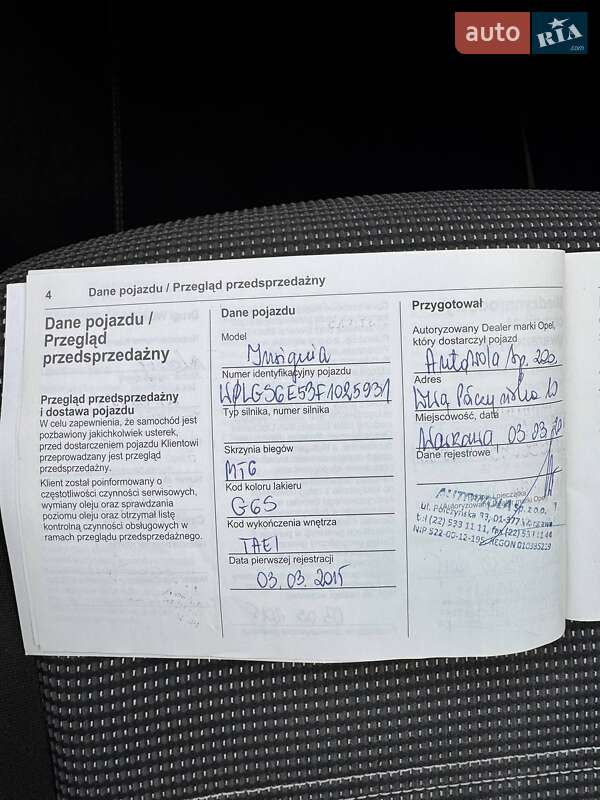 auto RIA .com
4 Dane pojazdu / Przegląd przedsprzedażny
Dane pojazdu /
Przegląd
przedsprzedażny
Przegląd przedsprzedażny
i dostawa pojazdu
W celu zapewnienia, że samochód jest
pozbawiony jakichkolwiek usterek,
przed dostarczeniem pojazdu Klientowi
przeprowadzany jest przegląd
przedsprzedażny.
Klient został poinformowany o
częstotliwości czynności serwisowych,
wymiany oleju oraz sprawdzania
poziomu oleju oraz otrzymał listę
kontrolną czynności obsługowych w
ramach przeglądu przedsprzedażnego.
Dane pojazdu
Model
Insignia
Numer identyfikacyjny pojazdu
W0LGS6E53F1025931
Typ silnika, numer silnika
Skrzynia biegów
MT6
Kod koloru lakieru
G6S
Kod wykończenia wnętrza
TAEI
Data pierwszej rejestracji
03.03.2015
Przygotował
Autoryzowany Dealer marki Opel,
który dostarczył pojazd
Autowola sp. zoo.
Adres
Miejscowość, data
Warszawa 03.03.20
Dane rejestrowe
Autoryzowany marki Opel
sp. z o.o.
ul. Połczyńska 93, 01-377 Warszawa
tel (22) 533 11 11, fax (22) 533 11 44
NIP 522-00-12-195, REGON 010385213